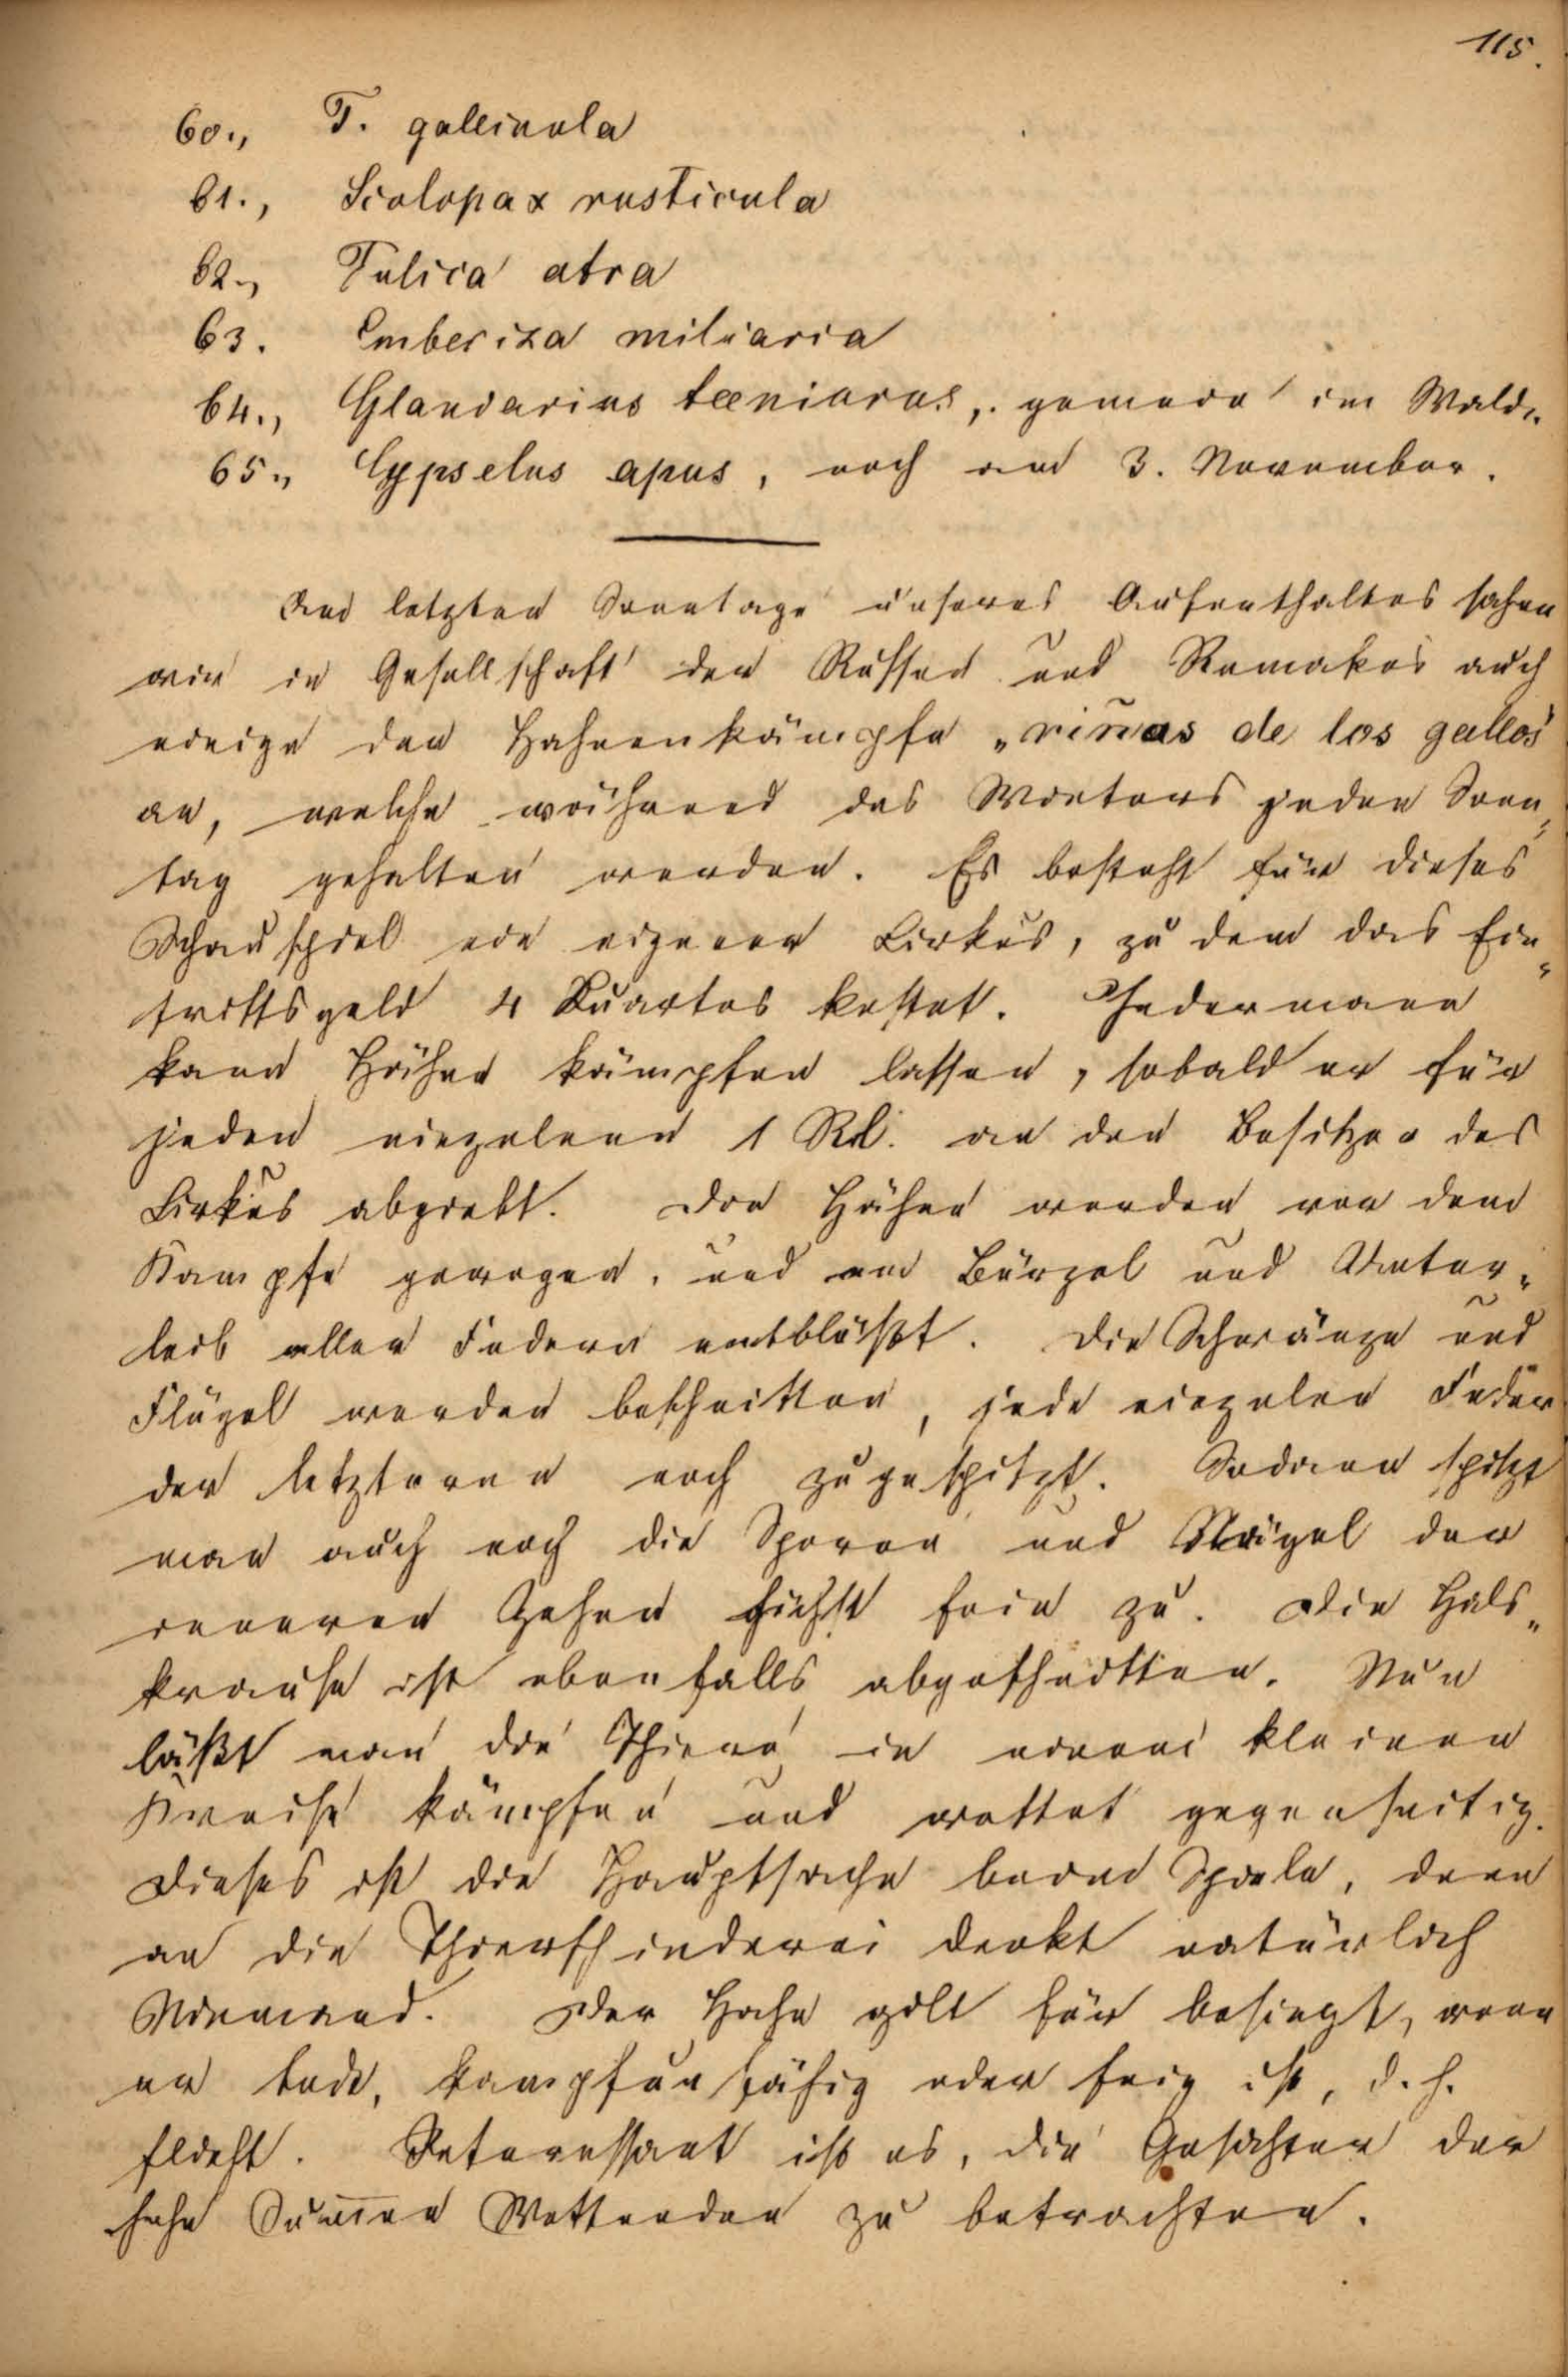 115.
60., T. gallinula
61., Scolopax rusticula
62., Fulica atra
63. Emberiza miliaria
64., Glandarius, gemein im Walde.
65., Cypselus apus, noch am 3. November.
Am letzten Sonntage unseres Aufenthaltes sahen
wir in Gesellschaft der Russen und Remakos auch
einige der Hahnenkämpfe „riñas de los gallos"
an, welche während des Winters jeden Sonn„
tag gehalten werden. Es besteht für dieses
Schauspiel ein eigener Cirkus, zu dem das Ein„
trittsgeld 4 Kuartos kostet. Jedermann
kann Hähne kämpfen lassen, sobald er für
jeden einzelnen 1 Rl. an den Besitzer des
Cirkus abgiebt. Die Hähne werden vor dem
Kampfe gewogen, und am Bürzel und Unter„
leib aller Federn entblößt. Die Schwänze und
Flügel werden beschnitten, jede einzelne Feder
der letzteren noch zugespitzt. Sodann spitzt
man auch noch die Sporen und Nägel der
inneren Zehen höchst fein zu. Die Hals„
krause ist ebenfalls abgeschnitten. Nun
läßt man die Thiere in einem kleinen
Kreise kämpfen und wettet gegenseitig.
Dieses ist die Hauptsache beim Spiele, denn
an die Thierschinderei denkt natürlich
Niemand. Der Hahn gilt für besiegt, wenn
er todt, kampfunfähig oder feig ist, d. h.
flieht. Interessant ist es, die Gesichter der
hohe Sum̅en Wettenden zu betrachten.